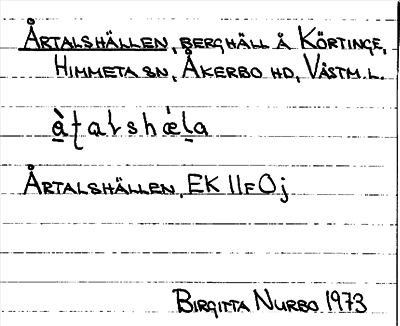 Årtalshällen, berghäll å Körtinge,
Himmeta sn, Åkerbo hd, Västm.l.
Årtalshällen, EK 11F0j
Birgitta Nurbo 1973